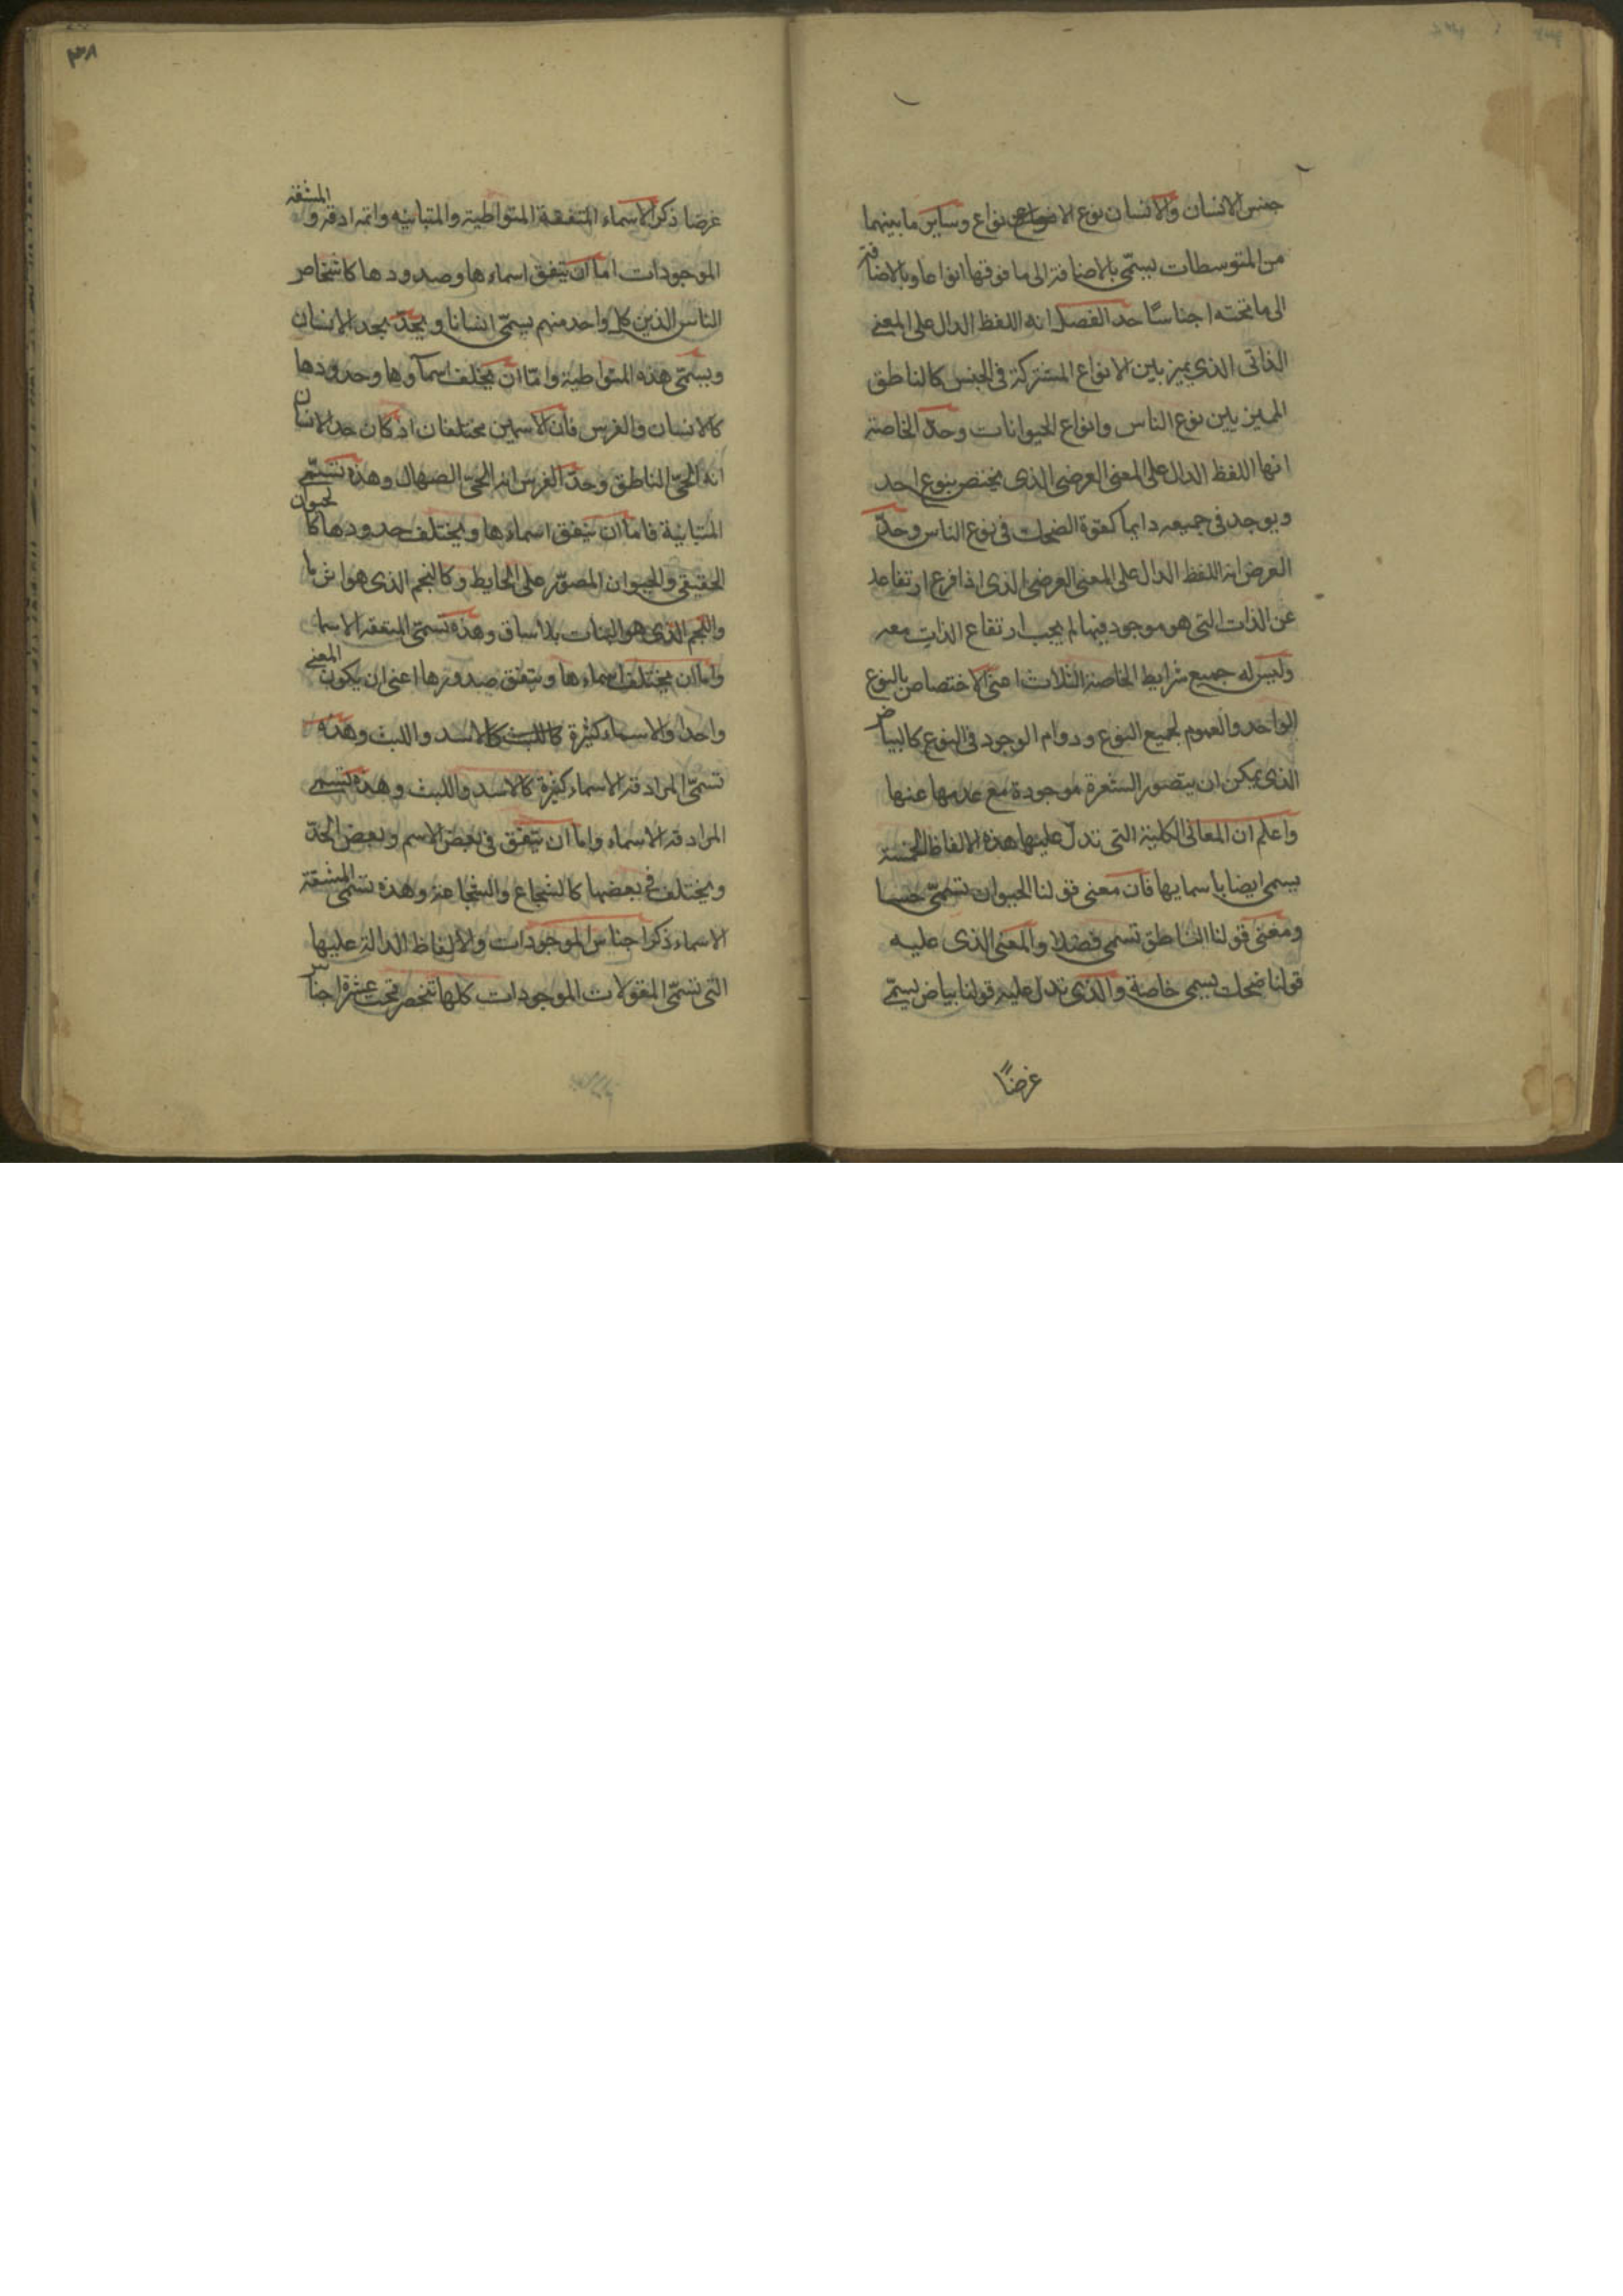 جنس الانسان والانسان نوع الانواع وساير ما بينهما
من المتوسطات يسمّى بالاضافة الى ما فوقها انواعا وبالاضافة
الى ما تحته اجناسًا حد الفصل انه اللفظ الدال على المعنى
الذاتى الذي يميز بين الانواع المشتركة فى الجنس كالناطق
المميز بين نوع الناس وانواع الحيوانات وحدّ الخاصة
انها اللفظ الدال على المعنى العرضى الذى يختص بنوع احد
ويوجد فى جميعه دايما كقوة الضحك فى نوع الناس وحدّ
العرض انه اللفظ الدال على المعنى العرضى الذى اذا فرع ارتفاعه
عن الذات التى هو موجود فيها لم يجب ارتفاع الذات معه
وليس له جميع شرايط الخاصة الثلاث اعنى الاختصاص بالنوع
الواحد والعموم لجميع النوع ودوام الوجود فى النوع كالبياض
الذى يمكن ان يتصور الشعرة موجودة مع عدمها عنها
واعلم ان المعانى الكلية التى تدلّ عليها هذه الالفاظ الخمسة
يسمى ايضا باسمايها فان معنى قولنا الحيوان تسمّى جنسا
ومعنى قولنا الناطق تسمى فضلا والمعنى الذى عليه
قولنا ضحك يسمى خاصة والذى تدل عليه قولنا بياض يسمّى
عرضًا
٣٨
عرضا ذكر الاسماء المتفقة المتواطية والمتباينه والمترادفة والمشتقة
الموجودات اما ان يتفق اسماءها وحدودها كاشخاص
الناس الذين كل واحد منهم يسمّى انسانا ويحدّ بحد الانسان
ويسمّى هذه المتواطية وامّا ان يختلف اسماوها وحدودها
كالانسان والفرس فان الاسمين مختلفان اذ كان حد الانسان
انه الحىّ الناطق وحدّ الفرس انه الحىّ الصهال وهذه تسمّى
المتباينة فاما ان يتفق اسماءها ويختلف حدودها كالحيوان
الحقيقى والحيوان المصوّر على الحايط وكالنجم الذى هو الثريا
والنجم الذى هو النبات بلا ساق وهذه تسمّى المتفقه الاسما
واما ان يختلف اسماءها ويتفق حدودها اعنى ان يكون المعنى
واحدا والاسماء كثيرة كالليث كالاسد والليث وهذه
تسمّى المرادفة الاسماء كثيرة كالاسد والليث وهذه تسمى
المرادفة الاسماء واما ان يتفق فى بعض الاسم وبعض الحدّ
ويختلف فى بعضها كالشجاع والشجاعة وهذه تسمى المشتقة
الاسماء ذكر اجناس الموجودات والالفاظ الدالة عليها
التى تسمّى المقولات الموجودات كلها تنحصر تحت عشرة اجناس